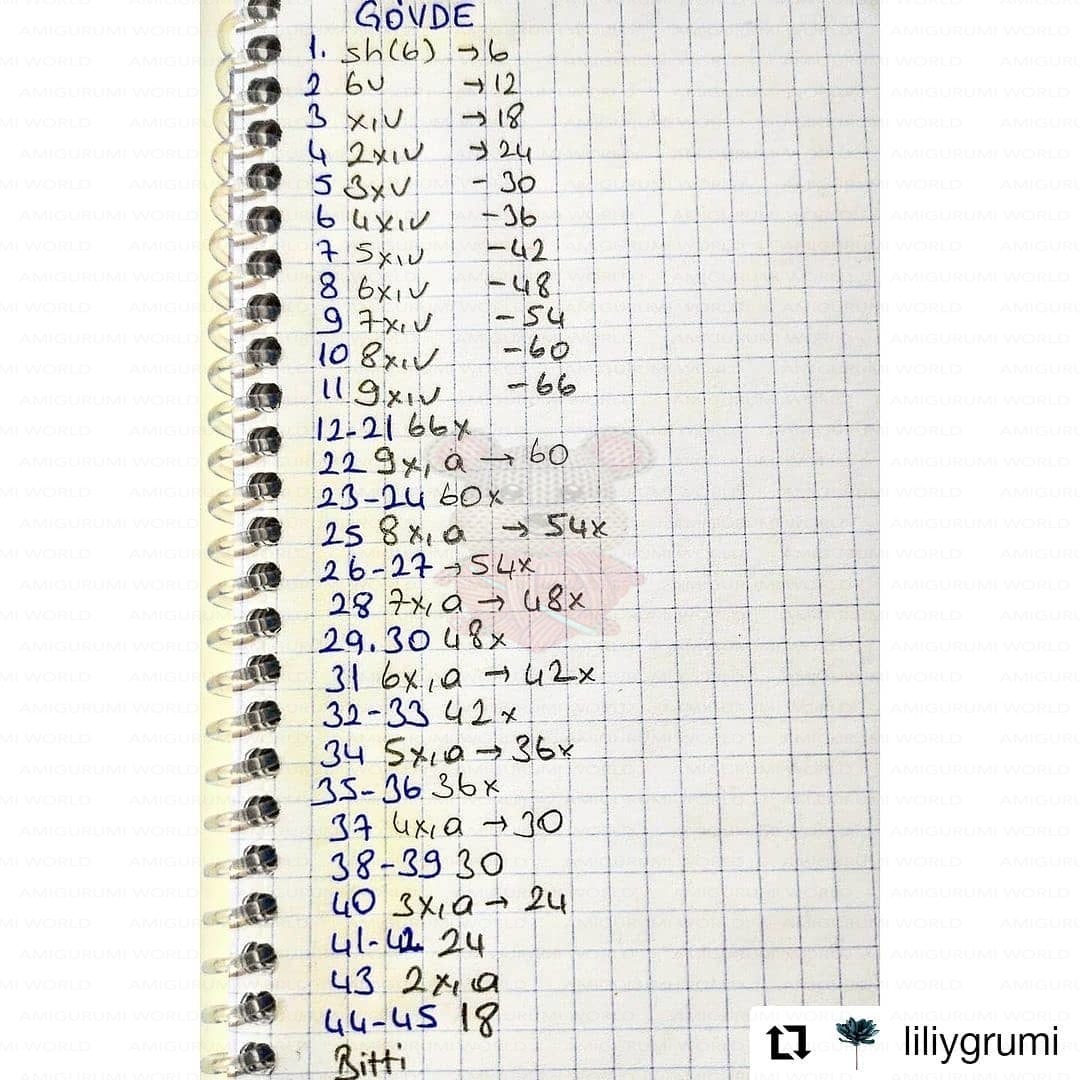 GÖVDE
1. sh(6) →6
2 6v →12
3 x,v →18
4 2x,v →24
5 3xv -30
6 4x,v -36
7 5x,v -42
8 6x,v -48
9 7x,v -54
10 8x,v -60
11 9x,v -66
12-21 66x
22 9x,a → 60
23-24 60x
25 8x,a → 54x
26-27 →54x
28 7x,a → 48x
29.30 48x
31 6x,a → 42x
32-33 42x
34 5x,a → 36x
35-36 36x
37 4x,a → 30
38-39 30
40 3x,a → 24
41-42 24
43 2x,a
44-45 18
Bitti
liliygrumi
AMIGURUMI WORLD